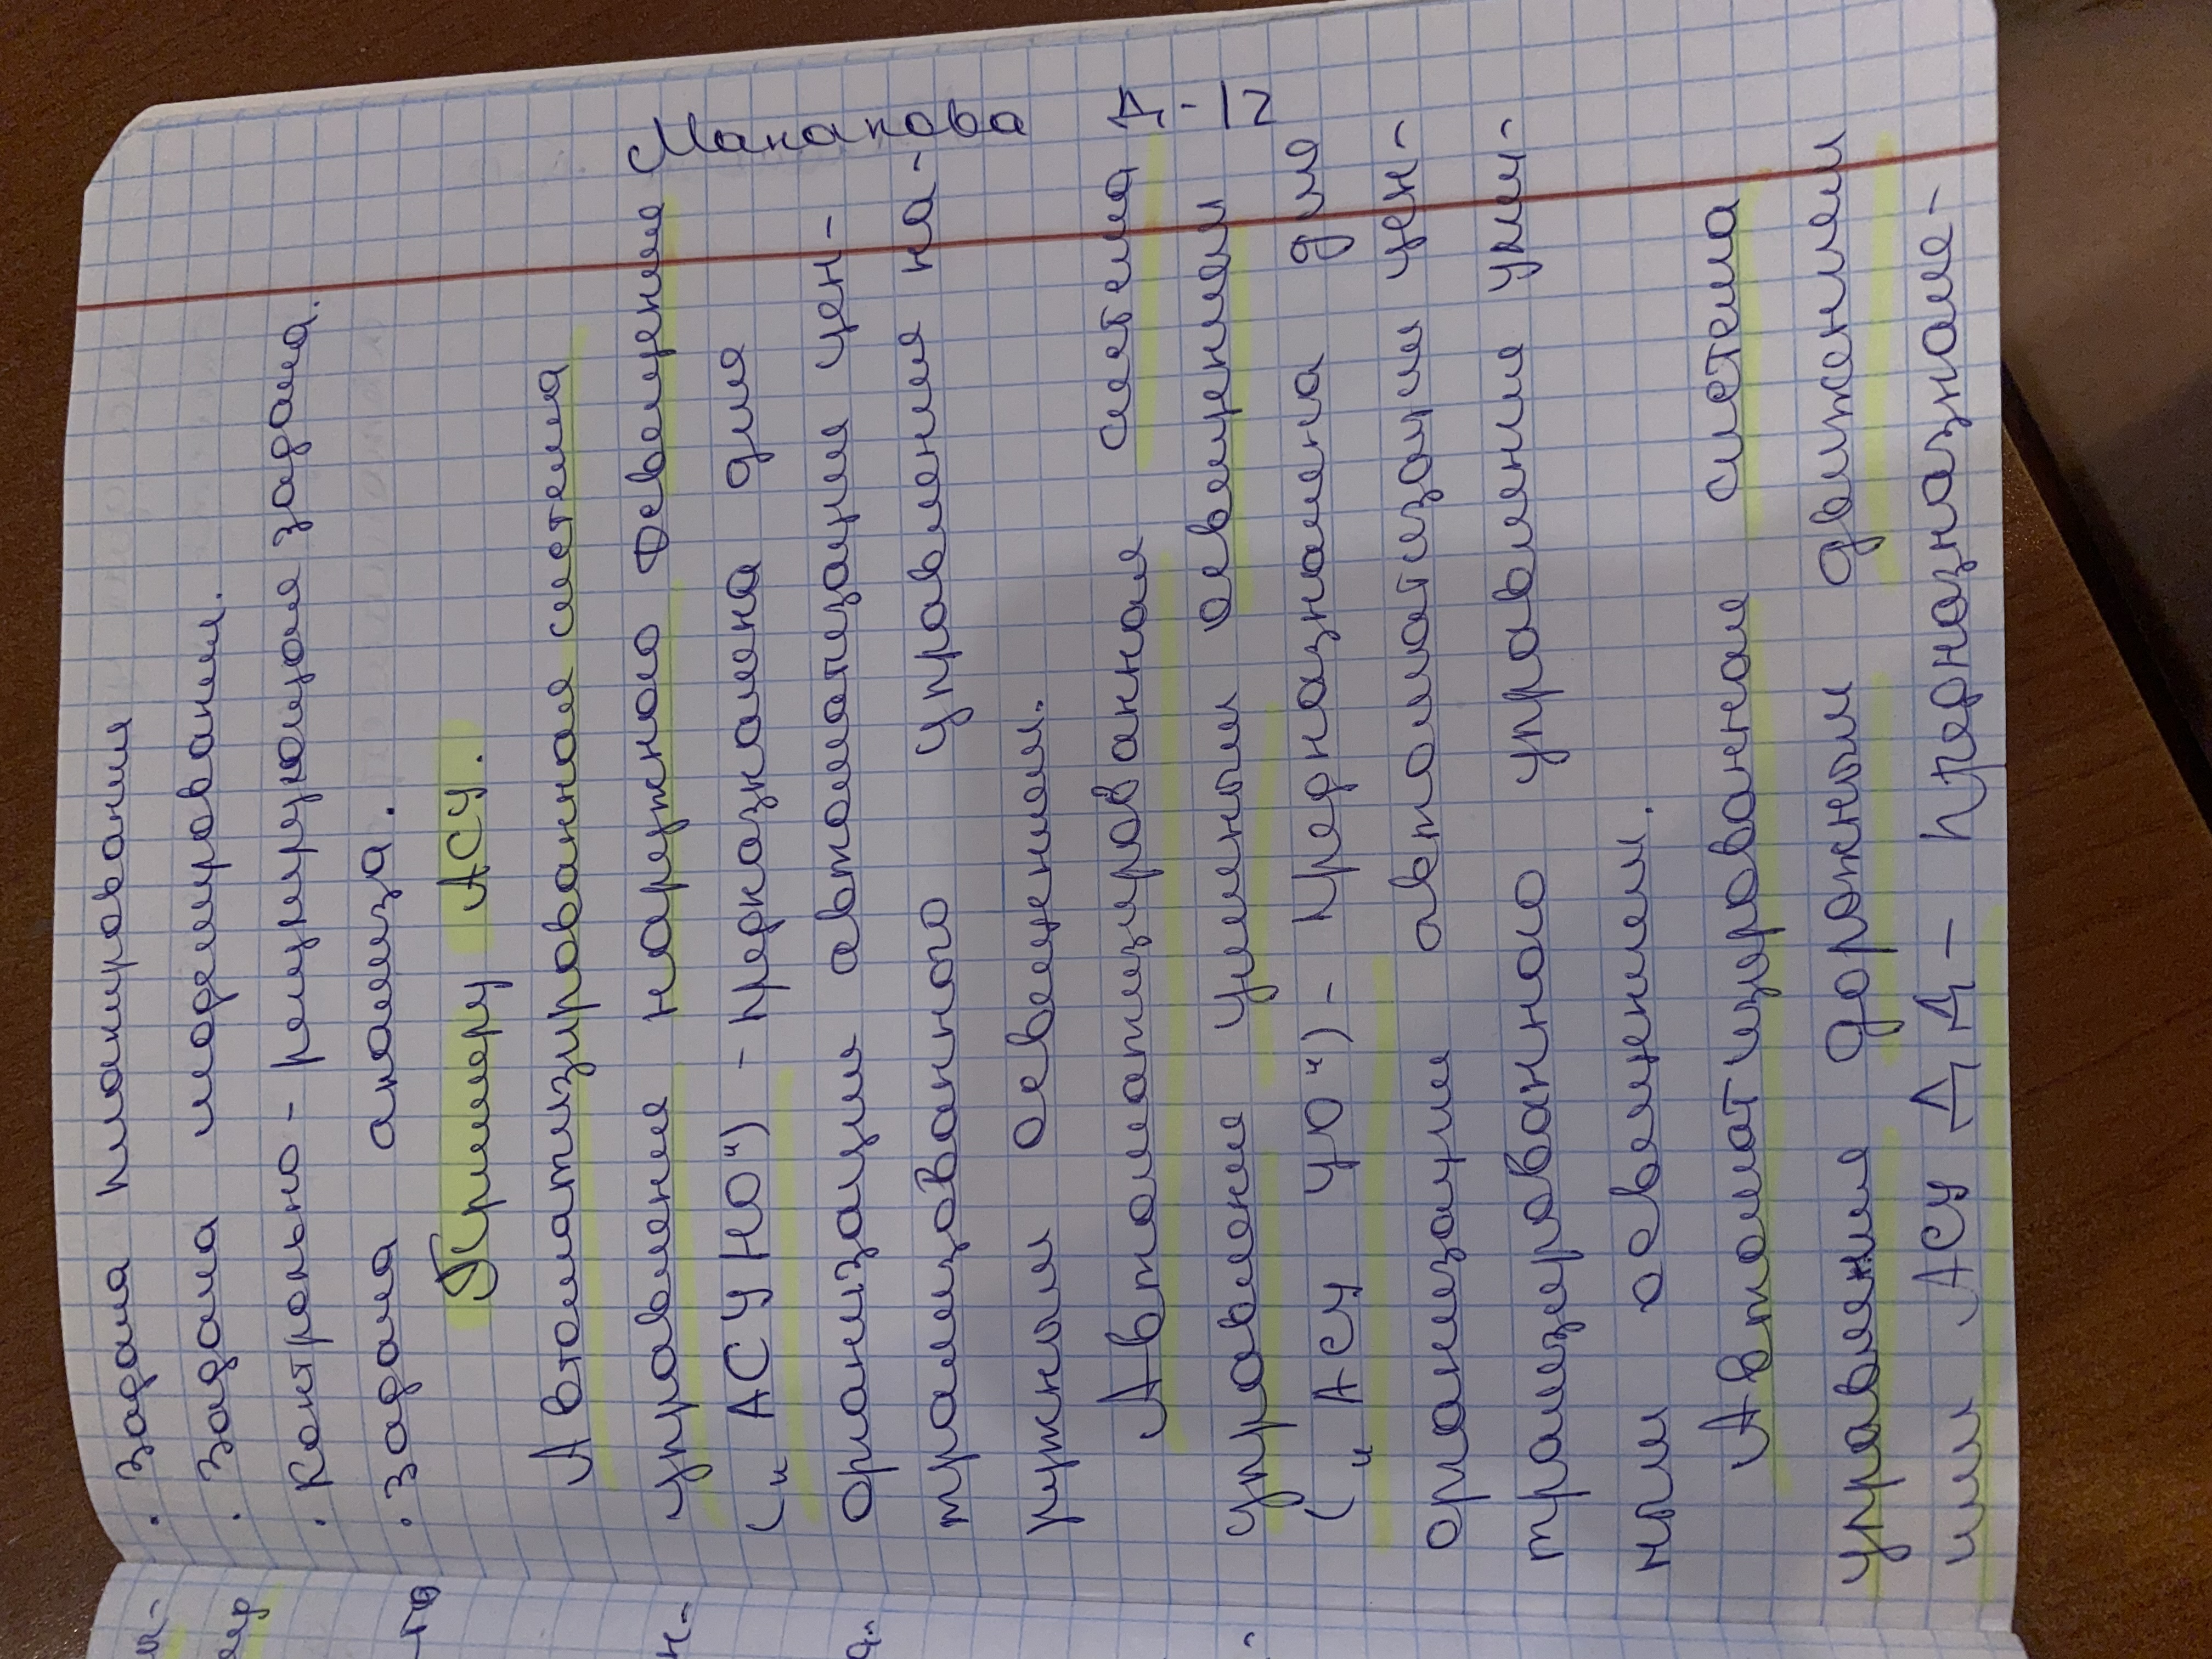 · Задача планирования
· Задача моделирования.
· Контрольно - регулирующая задача.
· Задача анализа.
Примеру АСУ.
Автоматизированная система
управления наружного освещения
(„АСУ НО") - предназначена для
организации автоматизации цен-
трализованного управления на-
ружным освещением.
Автоматизированная система
управления уличным освещением
(„АСУ УО") - предназначена для
организации автоматизации цен-
трализированного управления ули-
ным освещением.
Автоматизированная система
управления дорожным движением
или АСУ ДД - предназначе-
Манапова Д-12